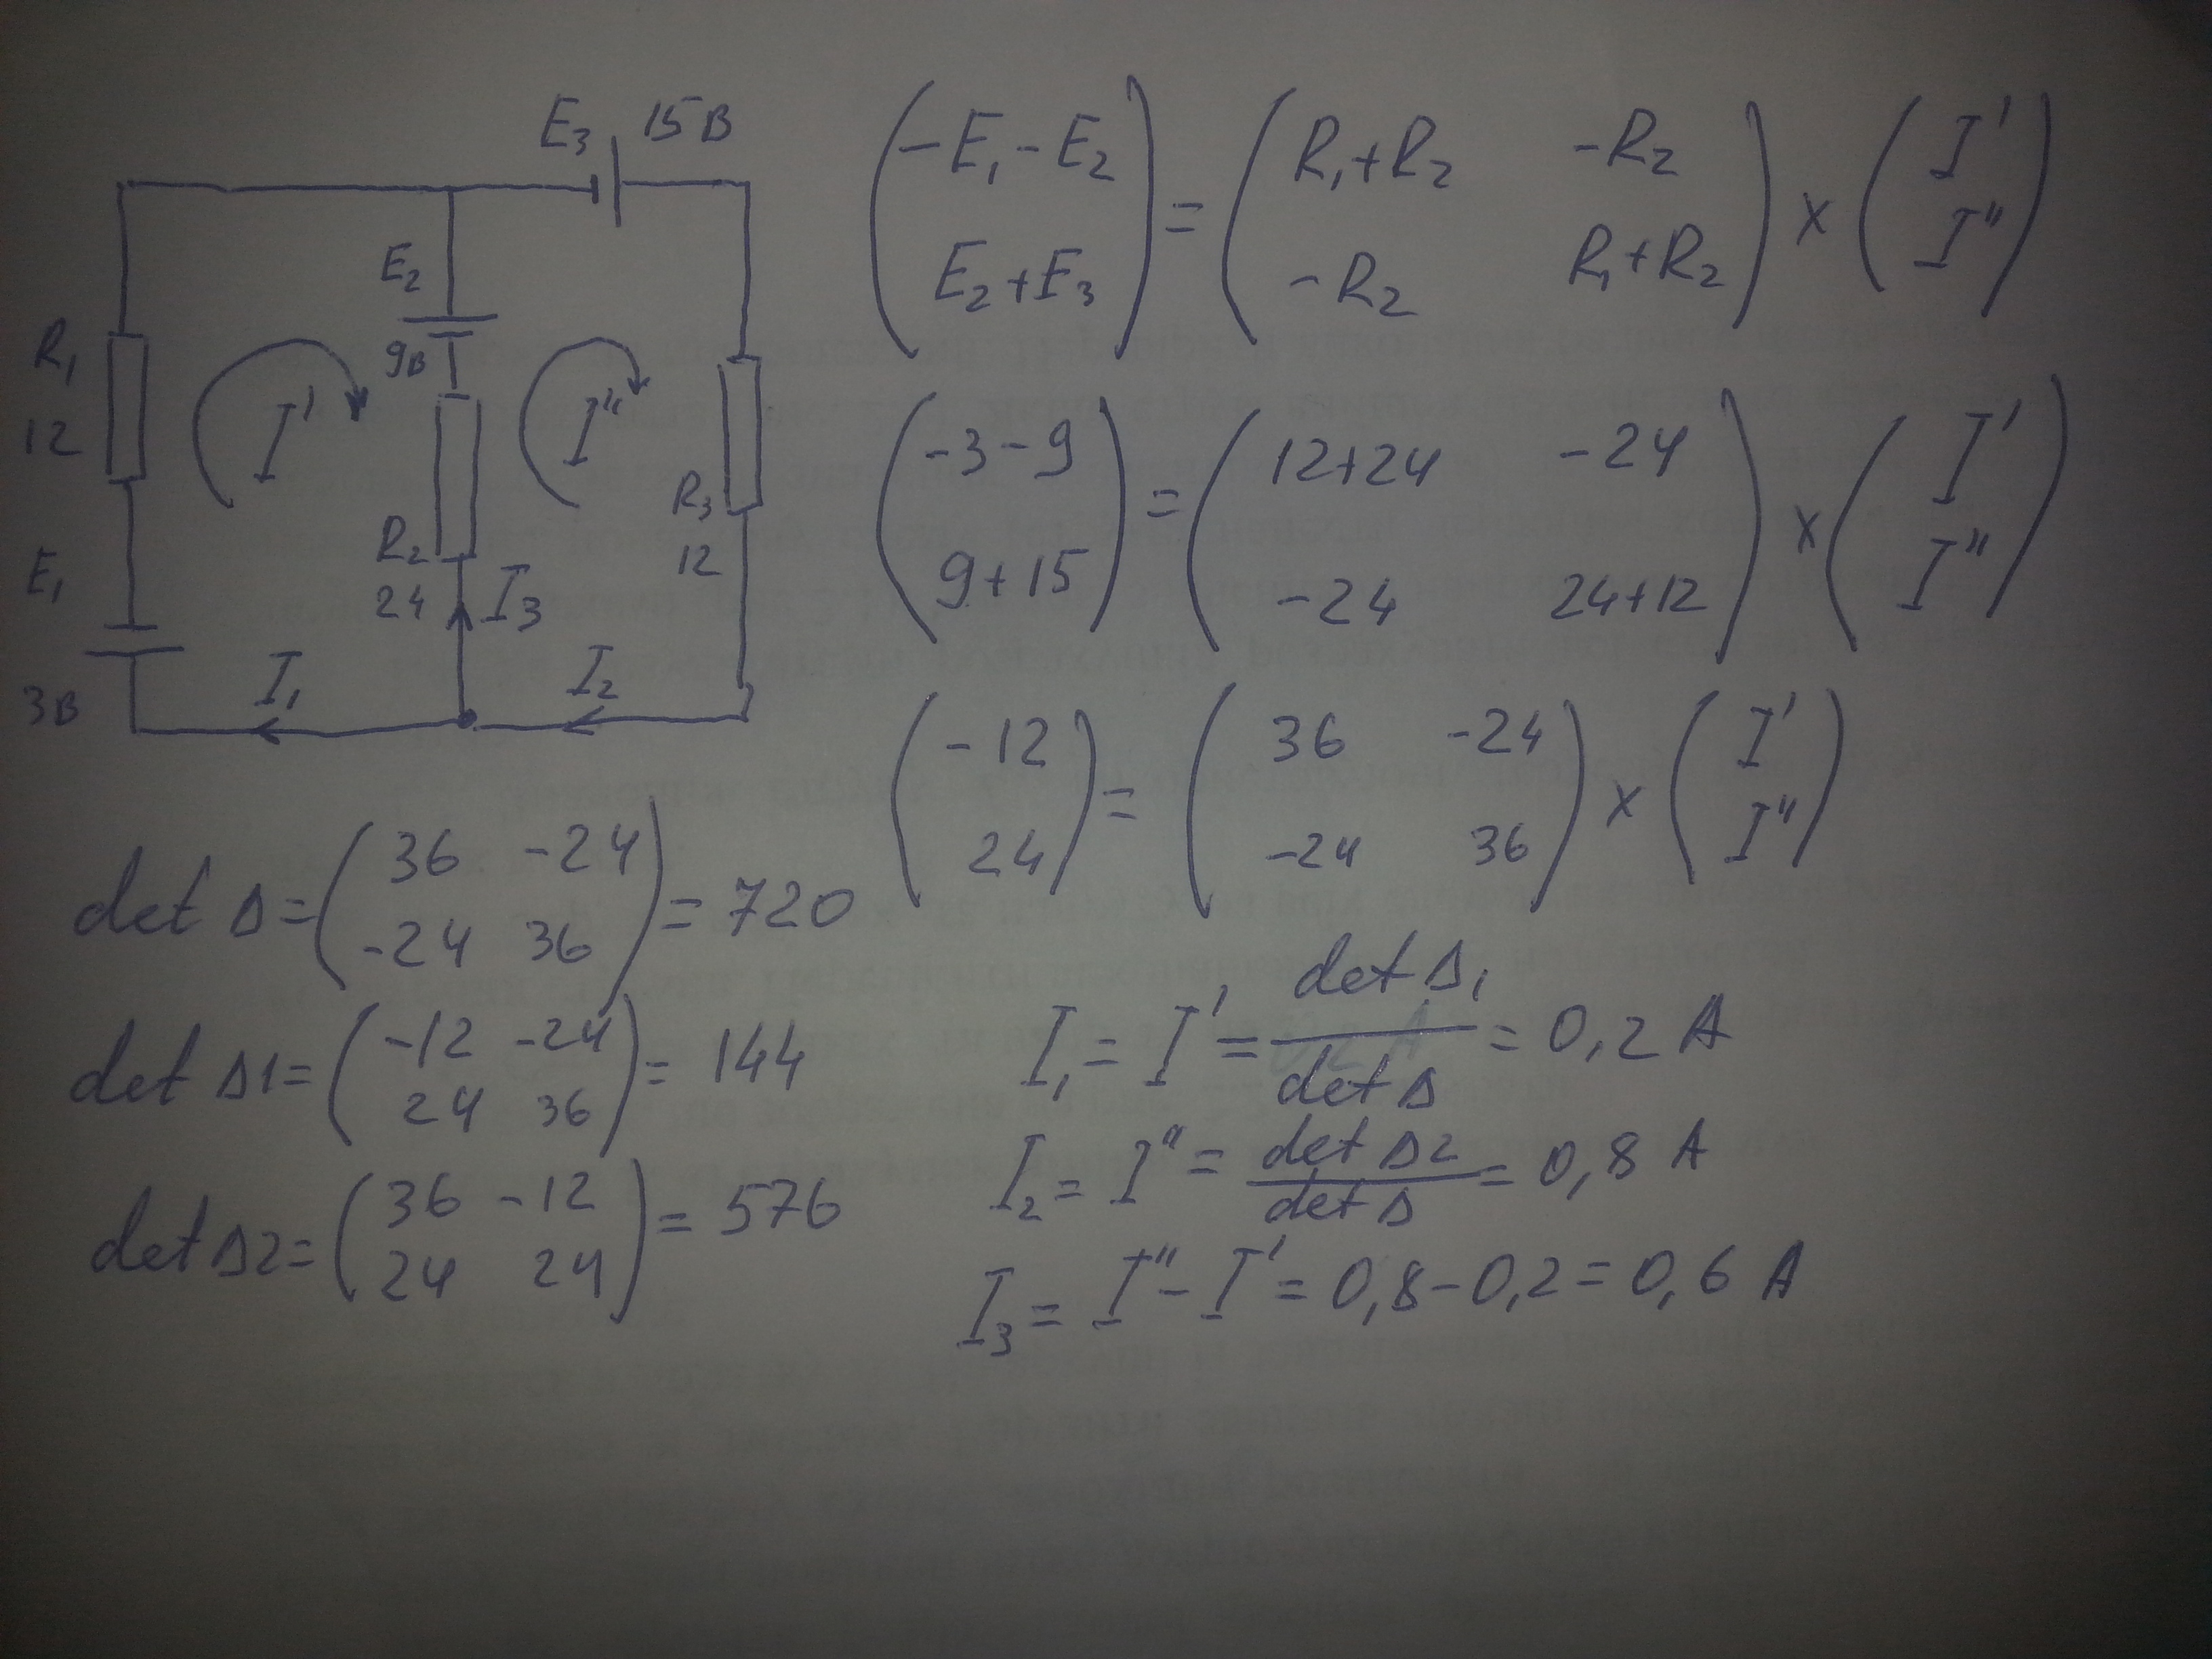 E₃ 15В
E₂
9в
R₁
12
I'
I"
R₃
12
R₂
24
I₃
E₁
3В
I₁
I₂
(-E₁-E₂ ; E₂+E₃) = (R₁+R₂ -R₂ ; -R₂ R₁+R₂) × (I' ; I")
(-3-9 ; 9+15) = (12+24 -24 ; -24 24+12) × (I' ; I")
(-12 ; 24) = (36 -24 ; -24 36) × (I' ; I")
det Δ = (36 -24 ; -24 36) = 720
det Δ1 = (-12 -24 ; 24 36) = 144
det Δ2 = (36 -12 ; 24 24) = 576
I₁ = I' = det Δ₁ / det Δ = 0,2 A
I₂ = I" = det Δ2 / det Δ = 0,8 A
I₃ = I" - I' = 0,8-0,2 = 0,6 A